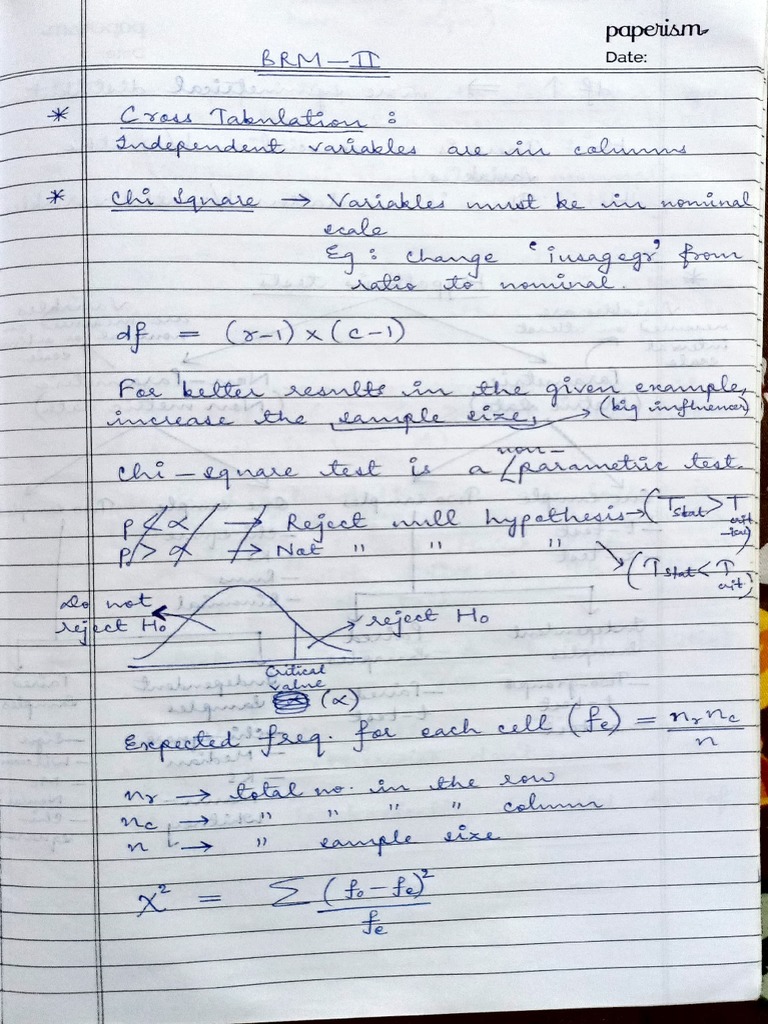 paperism
Date:
BRM - II
* Cross Tabulation :
Independent variables are in columns
* Chi Square → Variables must be in nominal
scale
Eg : change 'iusagegr' from
ratio to nominal.
df = (r-1) × (c-1)
For better results in the given example,
increase the sample size, → (big influencer)
Chi-square test is a non-parametric test.
p < α → Reject null hypothesis → (T stat > T crit-ical)
p > α → Not " " " → (T stat < T crit)
Do not
reject H₀
reject H₀
Critical
value
(α)
Expected freq. for each cell (fe) = nr nc / n
nr → total no. in the row
nc → " " " " column
n → " sample size
χ² = Σ (fo - fe)² / fe